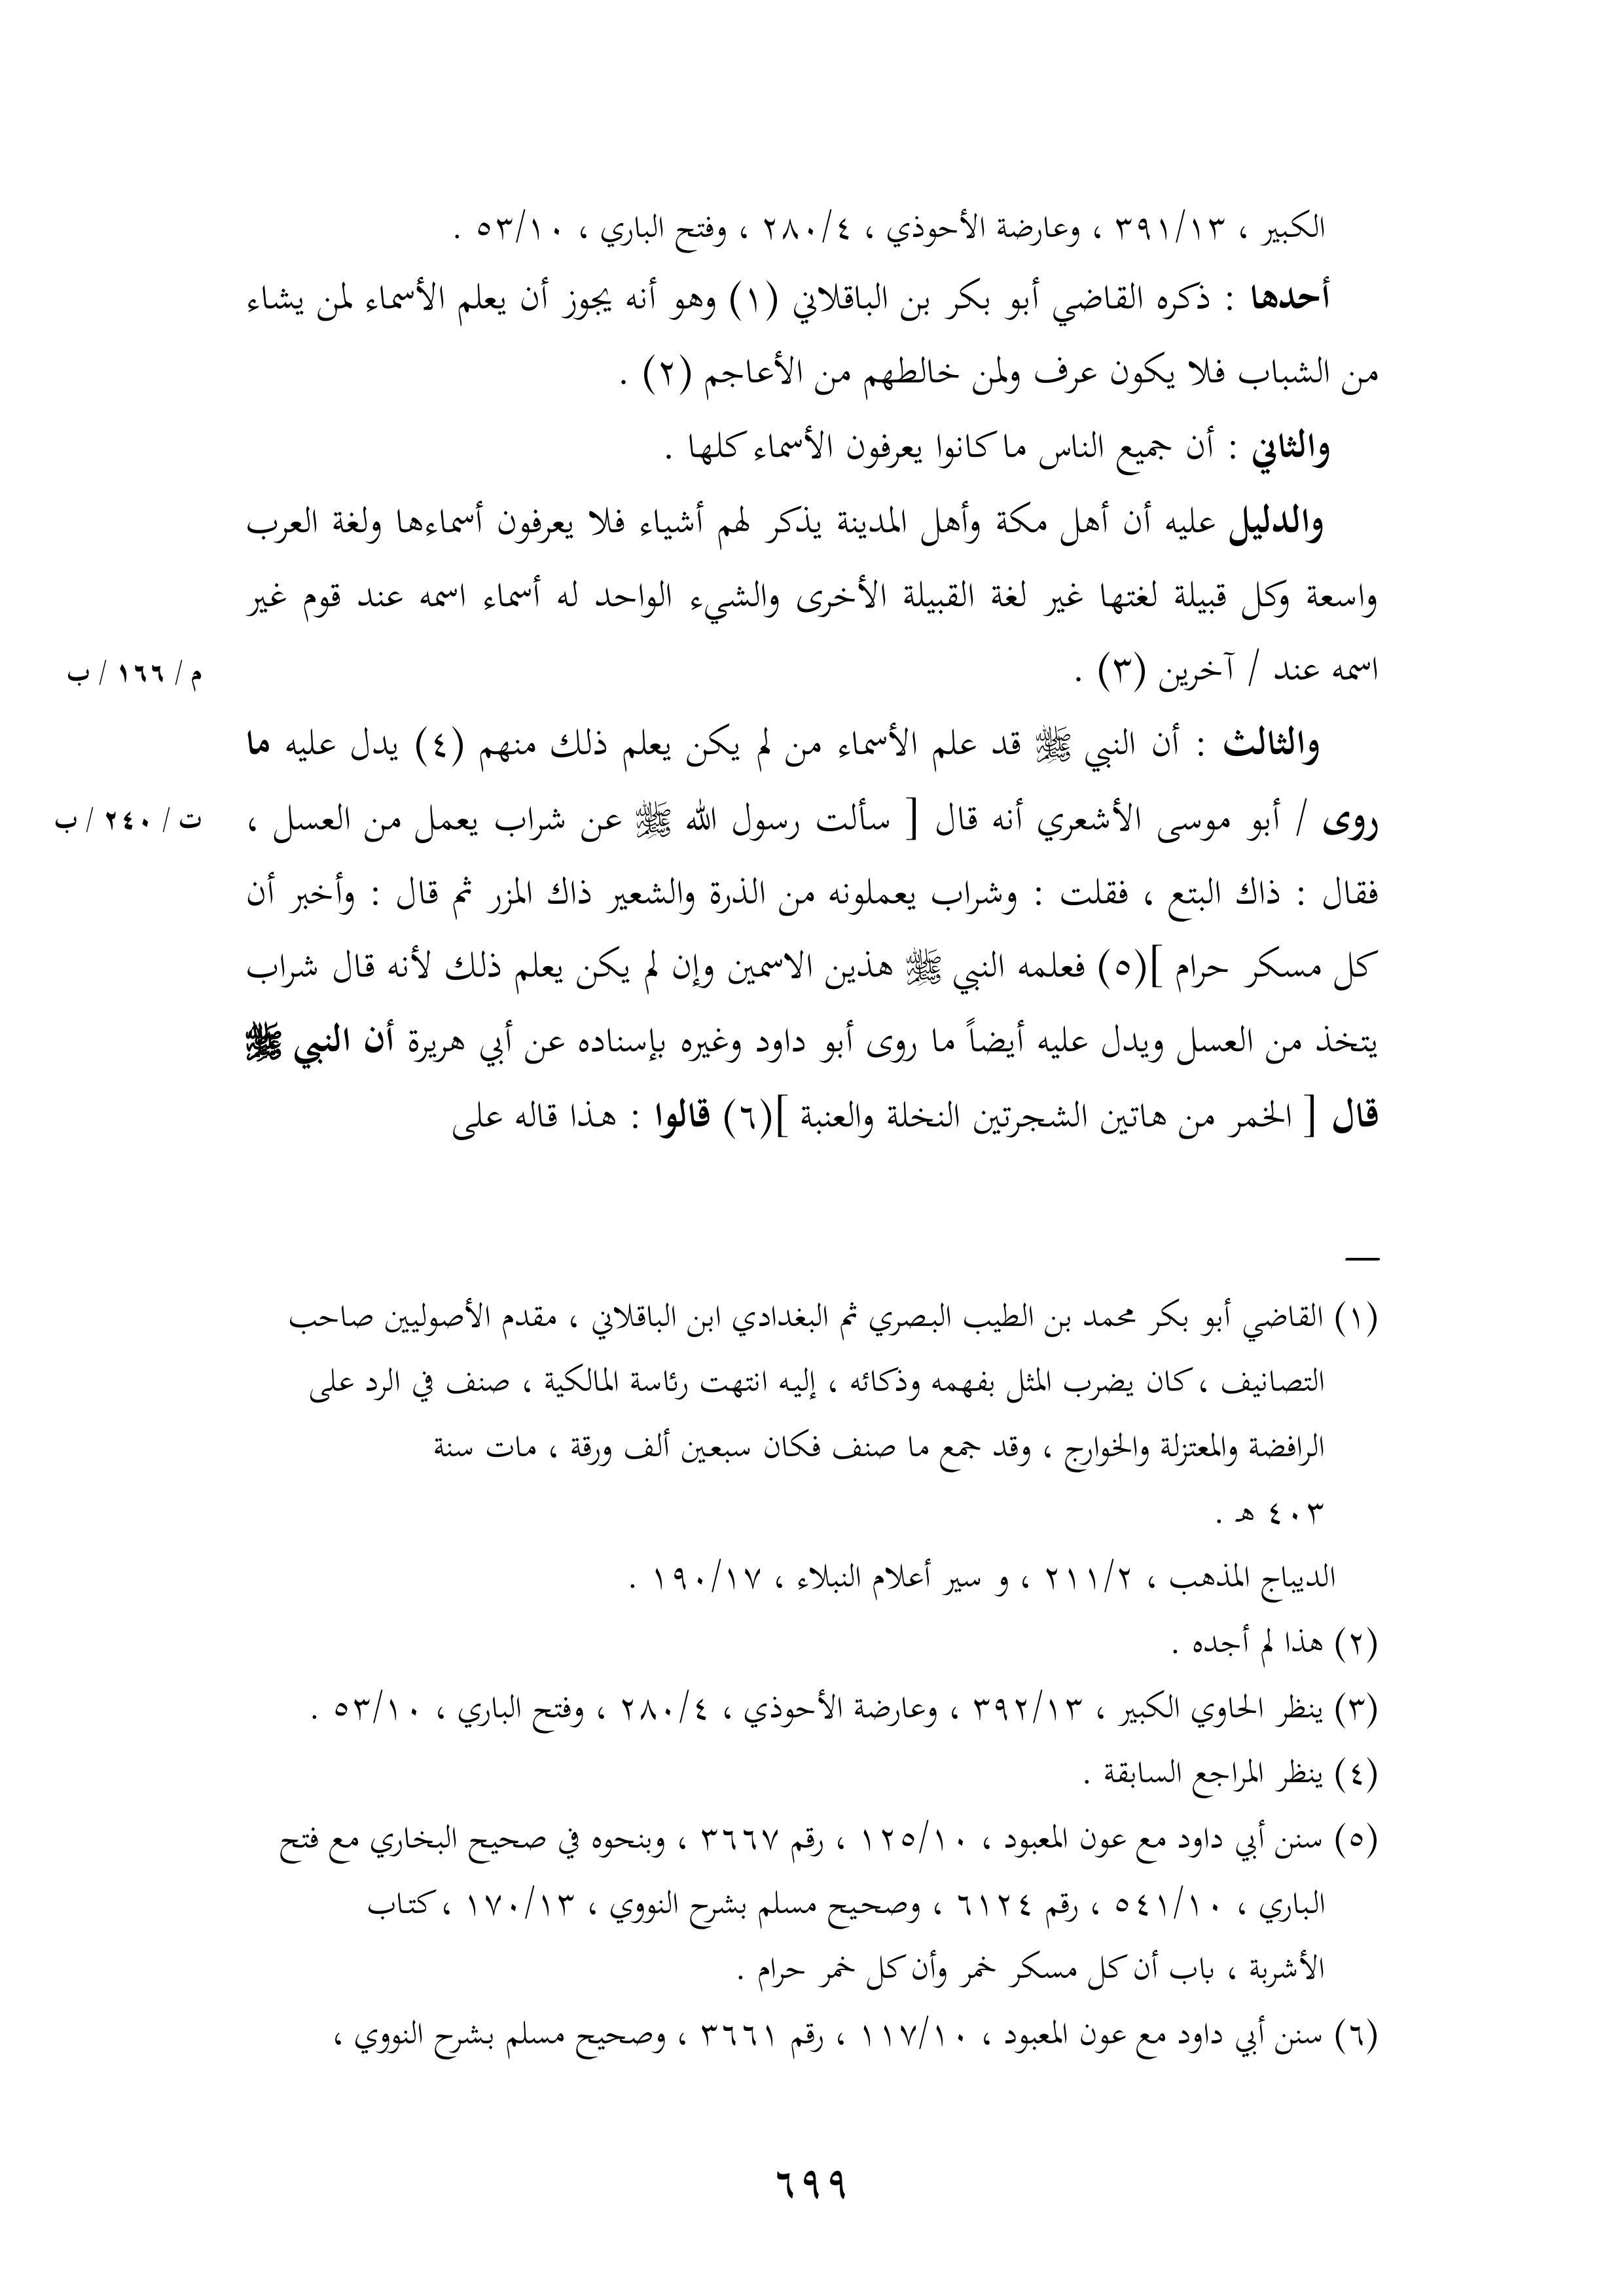 الكبير ، ٣٩١/١٣ ، وعارضة الأحوذي ، ٢٨٠/٤ ، وفتح الباري ، ٥٣/١٠ .
أحدها : ذكره القاضي أبو بكر بن الباقلاني (١) وهو أنه يجوز أن يعلم الأسماء لمن يشاء
من الشباب فلا يكون عرف ولمن خالطهم من الأعاجم (٢) .
والثاني : أن جميع الناس ما كانوا يعرفون الأسماء كلها .
والدليل عليه أن أهل مكة وأهل المدينة يذكر لهم أشياء فلا يعرفون أسماءها ولغة العرب
واسعة وكل قبيلة لغتها غير لغة القبيلة الأخرى والشيء الواحد له أسماء اسمه عند قوم غير
اسمه عند / آخرين (٣) .
م / ١٦٦ / ب
والثالث : أن النبي ﷺ قد علم الأسماء من لم يكن يعلم ذلك منهم (٤) يدل عليه ما
روى / أبو موسى الأشعري أنه قال [ سألت رسول الله ﷺ عن شراب يعمل من العسل ،
ت / ٢٤٠ / ب
فقال : ذاك البتع ، فقلت : وشراب يعملونه من الذرة والشعير ذاك المزر ثم قال : وأخبر أن
كل مسكر حرام ](٥) فعلمه النبي ﷺ هذين الاسمين وإن لم يكن يعلم ذلك لأنه قال شراب
يتخذ من العسل ويدل عليه أيضاً ما روى أبو داود وغيره بإسناده عن أبي هريرة أن النبي ﷺ
قال [ الخمر من هاتين الشجرتين النخلة والعنبة ](٦) قالوا : هذا قاله على
(١) القاضي أبو بكر محمد بن الطيب البصري ثم البغدادي ابن الباقلاني ، مقدم الأصوليين صاحب
التصانيف ، كان يضرب المثل بفهمه وذكائه ، إليه انتهت رئاسة المالكية ، صنف في الرد على
الرافضة والمعتزلة والخوارج ، وقد جمع ما صنف فكان سبعين ألف ورقة ، مات سنة
٤٠٣ هـ .
الديباج المذهب ، ٢١١/٢ ، و سير أعلام النبلاء ، ١٩٠/١٧ .
(٢) هذا لم أجده .
(٣) ينظر الحاوي الكبير ، ٣٩٢/١٣ ، وعارضة الأحوذي ، ٢٨٠/٤ ، وفتح الباري ، ٥٣/١٠ .
(٤) ينظر المراجع السابقة .
(٥) سنن أبي داود مع عون المعبود ، ١٢٥/١٠ ، رقم ٣٦٦٧ ، وبنحوه في صحيح البخاري مع فتح
الباري ، ٥٤١/١٠ ، رقم ٦١٢٤ ، وصحيح مسلم بشرح النووي ، ١٧٠/١٣ ، كتاب
الأشربة ، باب أن كل مسكر خمر وأن كل خمر حرام .
(٦) سنن أبي داود مع عون المعبود ، ١١٧/١٠ ، رقم ٣٦٦١ ، وصحيح مسلم بشرح النووي ،
٦٩٩